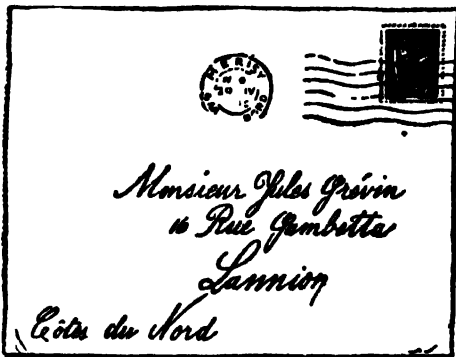 MERISY
Monsieur Jules Grévin
16 Rue Gambetta
Lannion
Côtes du Nord